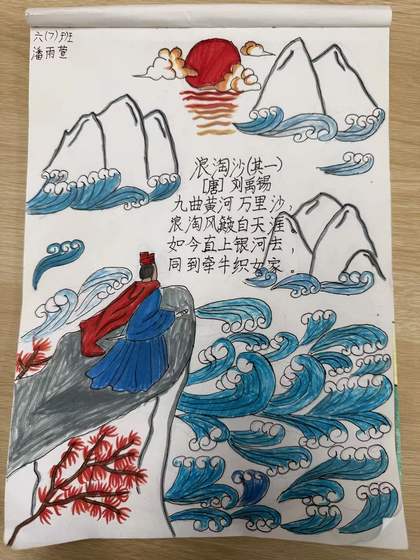 六(7)班
潘雨萱
浪淘沙(其一)
[唐] 刘禹锡
九曲黄河万里沙，
浪淘风簸自天涯。
如今直上银河去，
同到牵牛织女家。